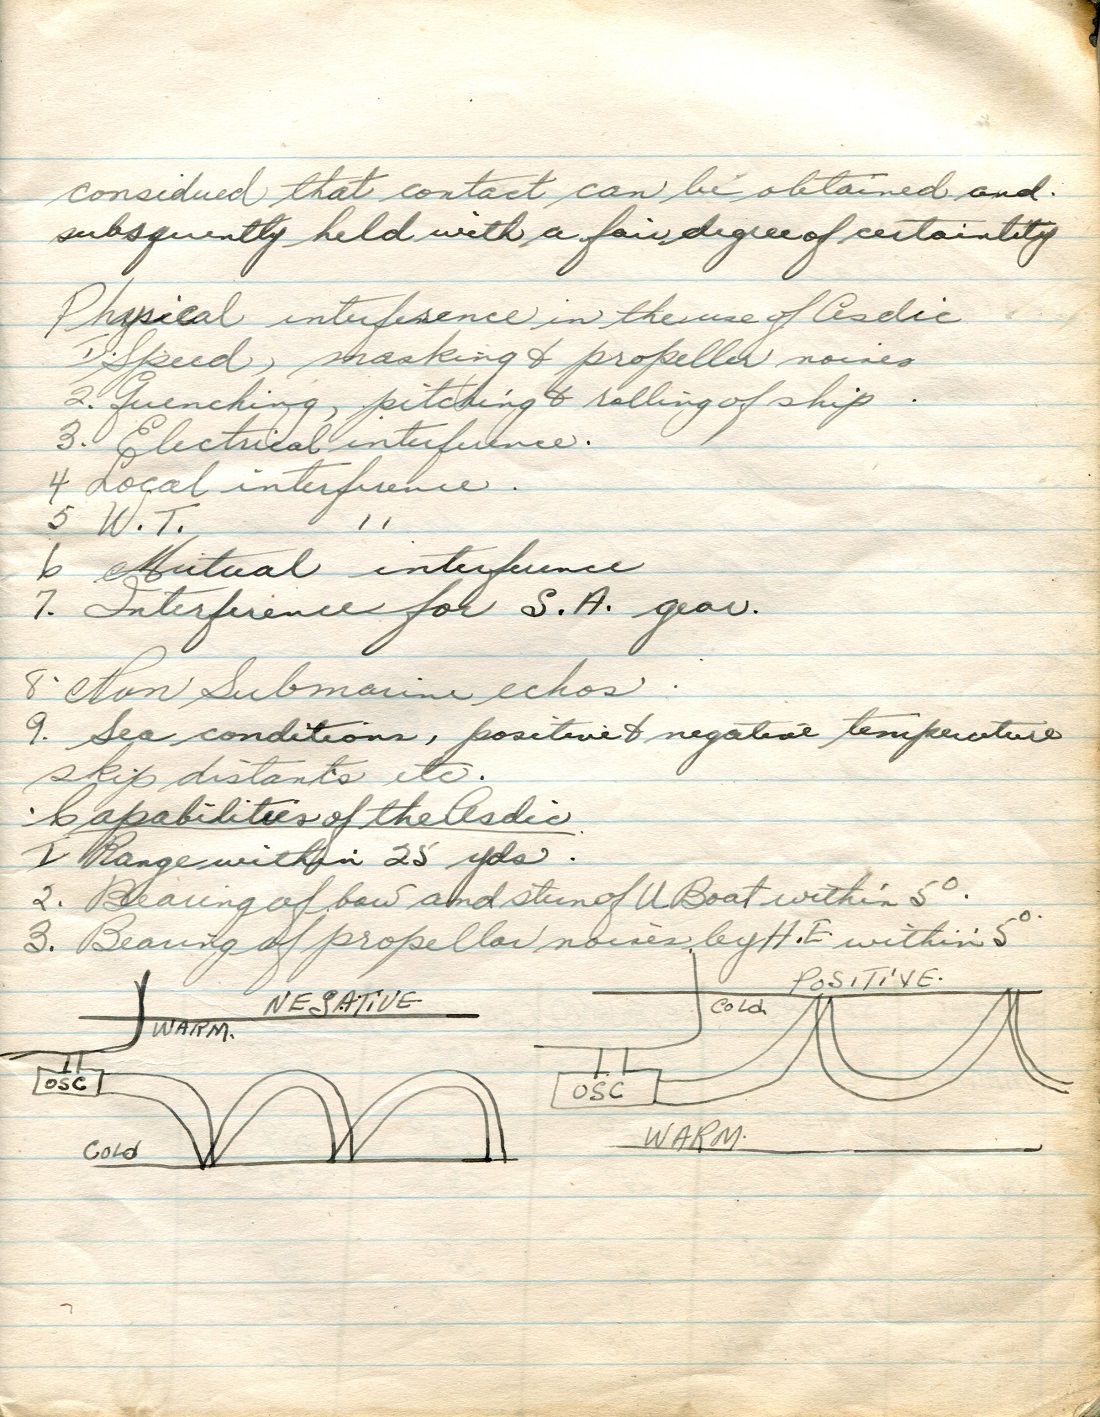 considued that contact can be obtained and.
subsquently held with a fair degree of certaintity
Physical interference in the use of Asdic
1. Speed, masking & propeller noises
2. Quenching, pitching & rolling of ship.
3. Electrical interference.
4 Local interference.
5 W.T. "
6 Mutual interference
7. Interference for S.A. gear.
8. Non Submarine echos.
9. Sea conditions, positive & negative temperature
skip distants etc.
Capabilities of the Asdic
1 Range within 25 yds.
2. Bearing of bow and stern of U Boat within 5°.
3. Bearing of propellar noises by H.E within 5°.
NEGATIVE
WARM.
OSC
COLD
POSITIVE.
COLD.
OSC
WARM.